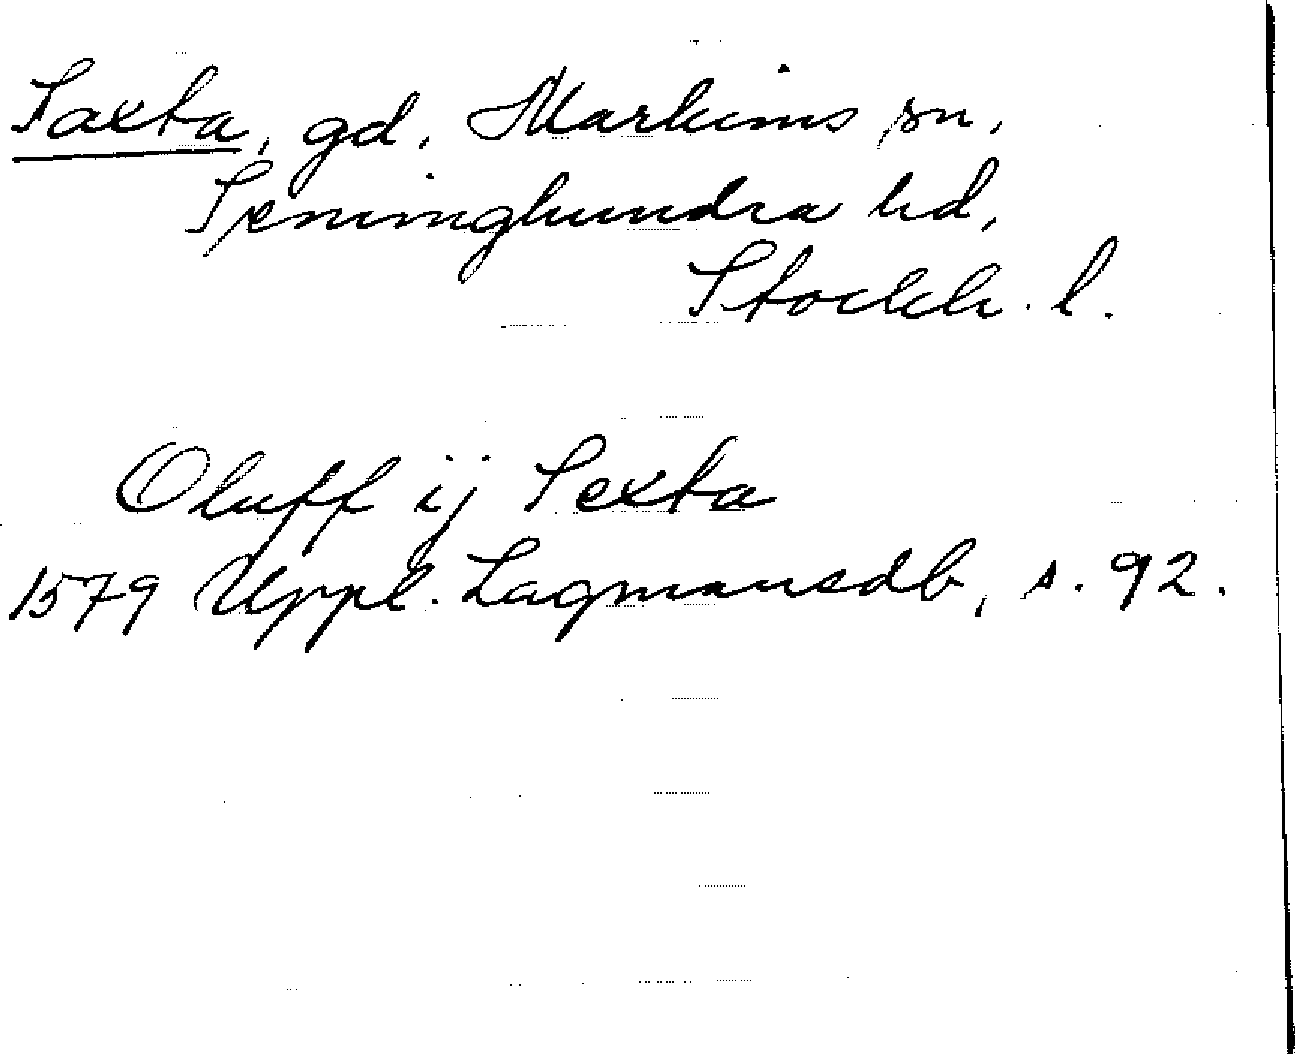 Saxta, gd. Markims sn,
Seminghundra hd,
Stockh. l.
Oluff ij Sexta
1579 Uppl. Lagmansdb, s. 92.